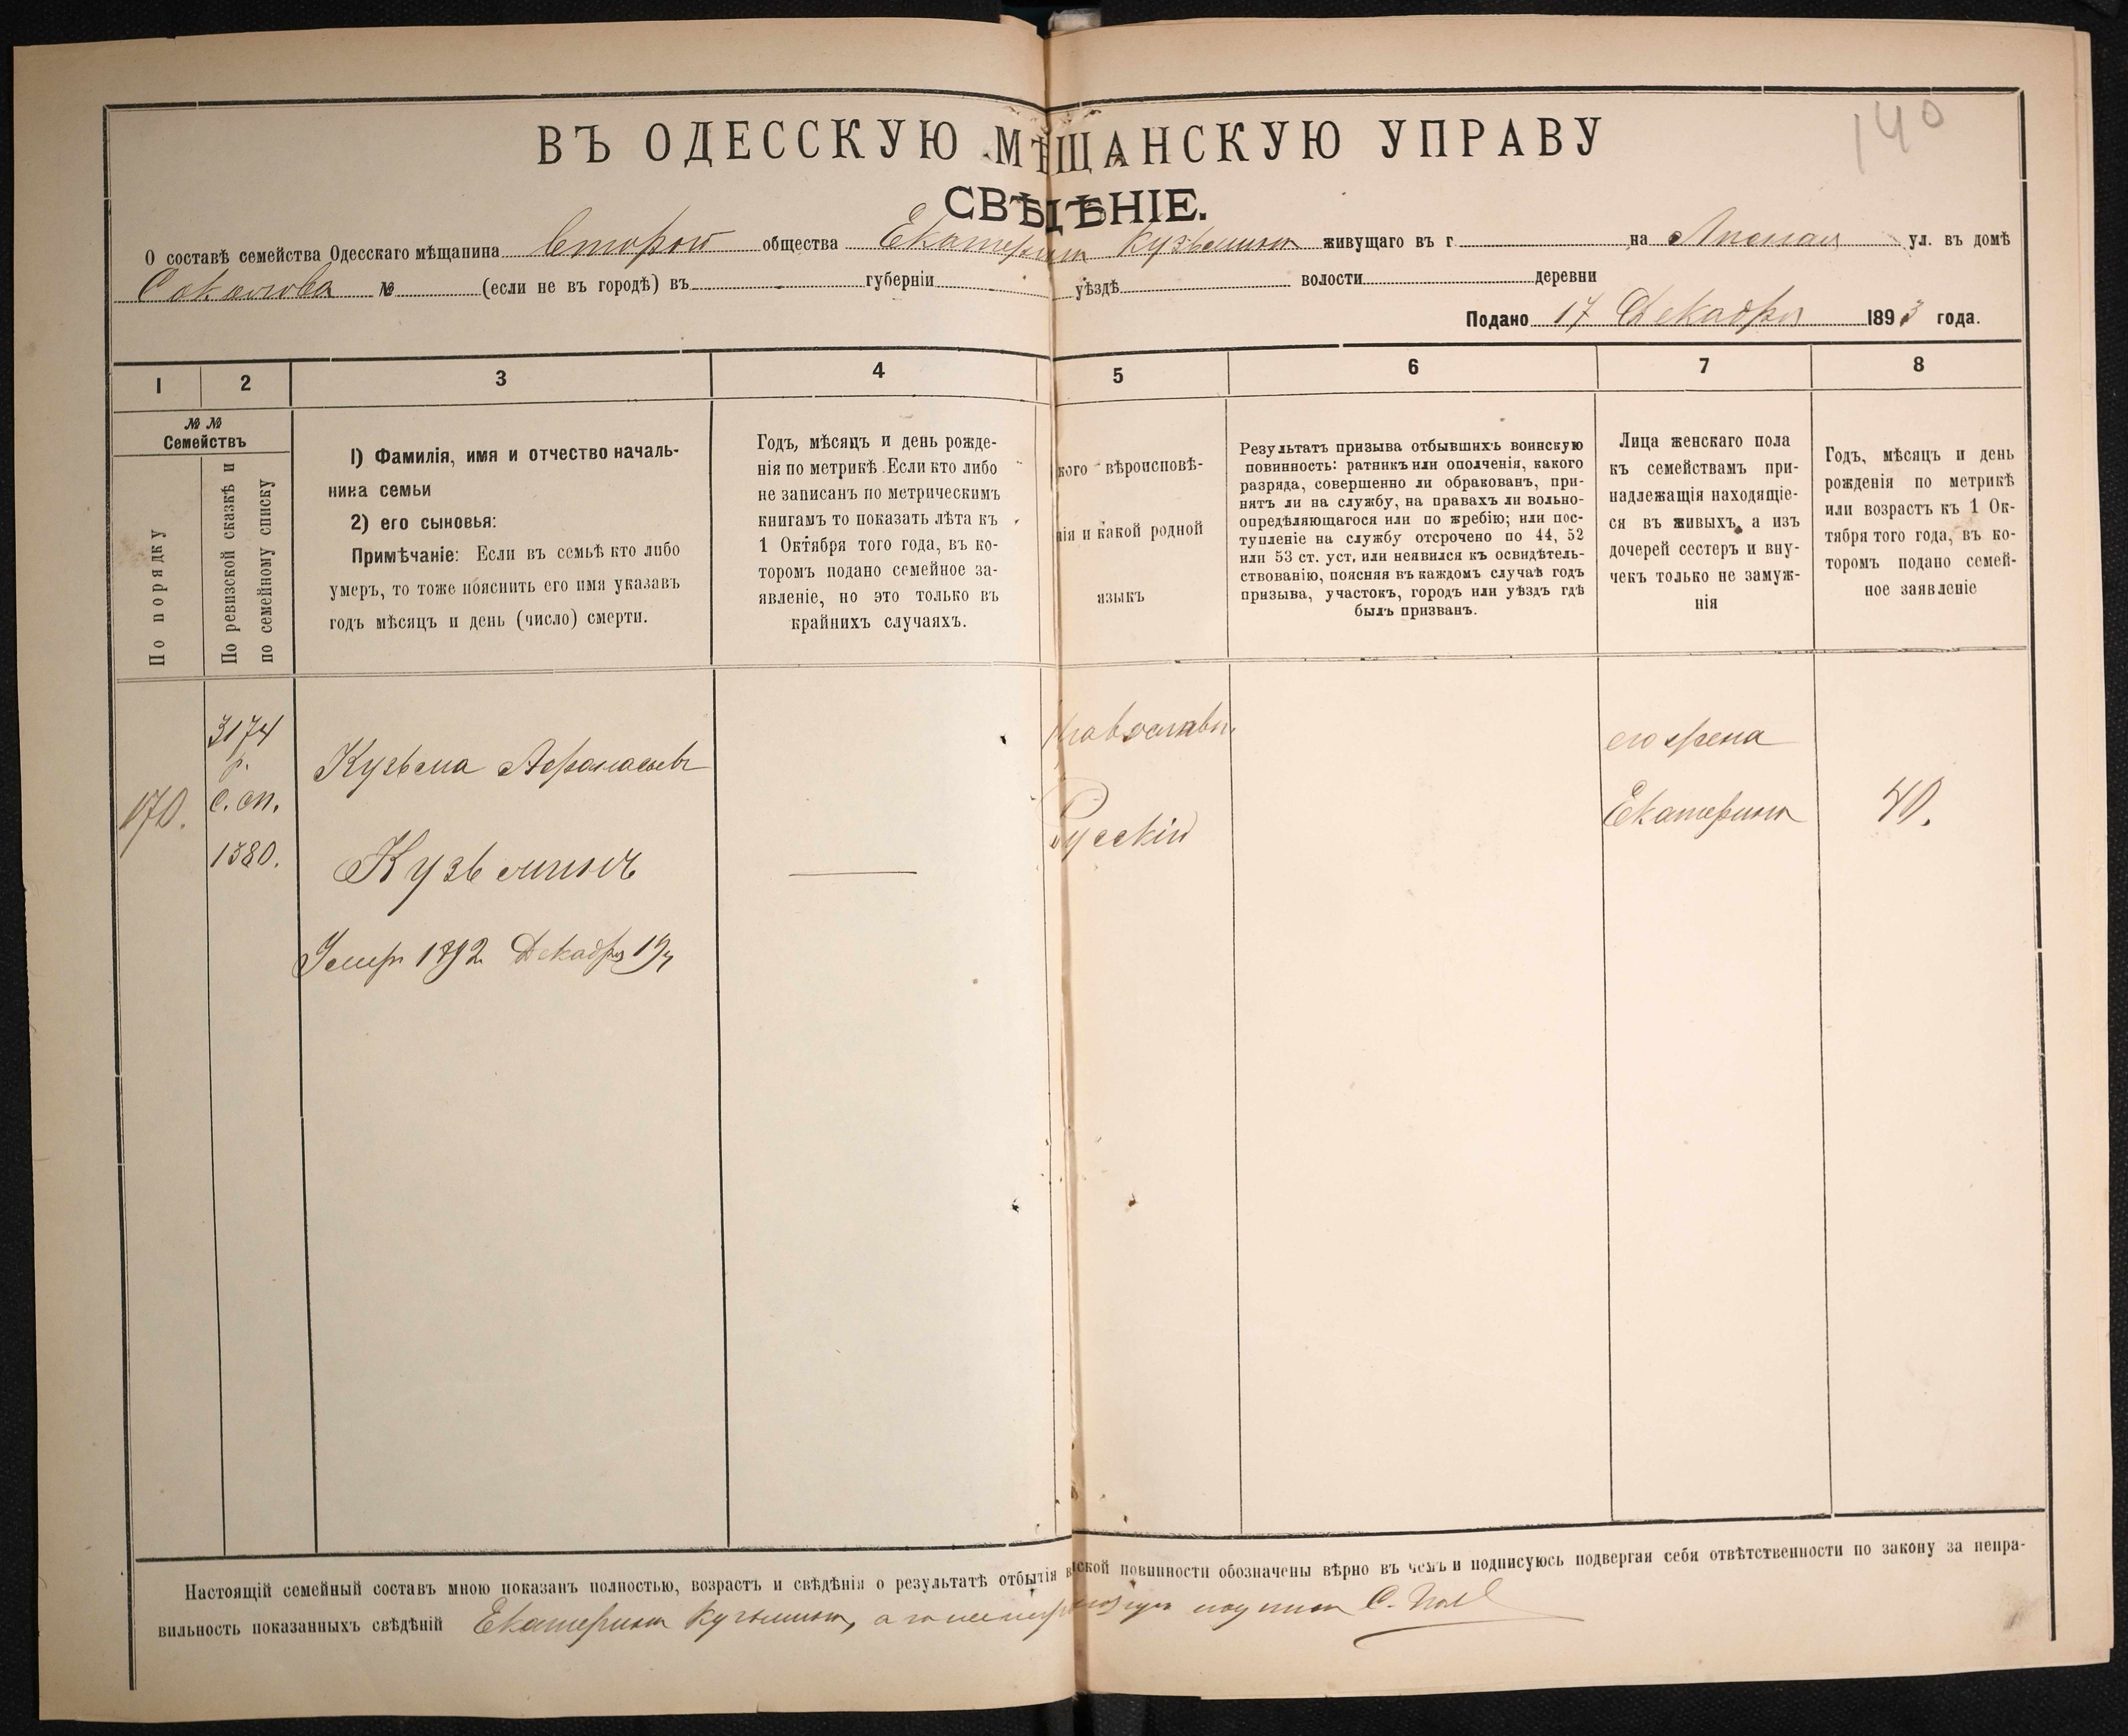 140
ВЪ ОДЕССКУЮ МѢЩАНСКУЮ УПРАВУ
СВѢДѢНІЕ.
О составѣ семейства Одесскаго мѣщанина Второй общества Екатерина Кузьмина живущаго въ г на ул. въ домѣ
Соколова № (если не въ городѣ) въ губерніи уѣздѣ волости деревни
Подано 17 Декабря 1893 года.
1 2 3 4 5 6 7 8
№ №
Семействъ
По порядку
По ревизской сказкѣ и
по семейному списку
1) Фамилія, имя и отчество началь-
ника семьи
2) его сыновья:
Примѣчаніе: Если въ семьѣ кто либо
умеръ, то тоже пояснить его имя указавъ
годъ мѣсяцъ и день (число) смерти.
Годъ, мѣсяцъ и день рожде-
нія по метрикѣ. Если кто либо
не записанъ по метрическимъ
книгамъ то показать лѣта къ
1 Октября того года, въ ко-
торомъ подано семейное за-
явленіе, но это только въ
крайнихъ случаяхъ.
кого вѣроисповѣ-
нія и какой родной
языкъ
Результатъ призыва отбывшихъ воинскую
повинность: ратникъ или ополченія, какого
разряда, совершенно ли обракованъ, при-
нятъ ли на службу, на правахъ ли вольно-
опредѣляющагося или по жребію; или пос-
тупленіе на службу отсрочено по 44, 52
или 53 ст. уст, или неявился къ освидѣтель-
ствованію, поясняя въ каждомъ случаѣ годъ
призыва, участокъ, городъ или уѣздъ гдѣ
былъ призванъ.
Лица женскаго пола
къ семействамъ при-
надлежащія находящіе-
ся въ живыхъ, а изъ
дочерей сестеръ и вну-
чекъ только не замуж-
нія
Годъ, мѣсяцъ и день
рожденія по метрикѣ
или возрастъ къ 1 Ок-
тября того года, въ ко-
торомъ подано семей-
ное заявленіе
170.
3174
р.
с. сп.
1380.
Кузьма Афанасьевъ
Кузьминъ
Умеръ 1892 Декабря 19
Православн.
Русскій
его жена
Екатерина
40.
Настоящій семейный составъ мною показанъ полностью, возрастъ и свѣдѣнія о результатѣ отбытія в ской повинности обозначены вѣрно въ чемъ и подписуюсь подвергая себя отвѣтственности по закону за непра-
вильность показанныхъ свѣдѣній Екатерина Кузьмина, а за неграмотную